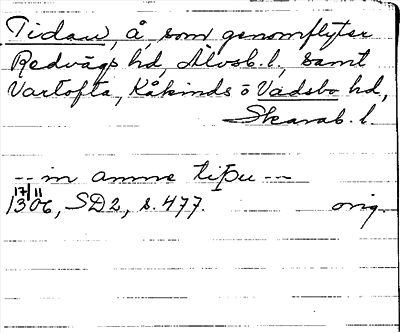 Tidan, å, som genomflyter
Redvägs hd, Älvsb. l., samt
Vartofta, Kåkinds o Vadsbo hd,
Skarab. l.
-- in amne tiþu --
17/11
1306, SD2, s. 477. orig.